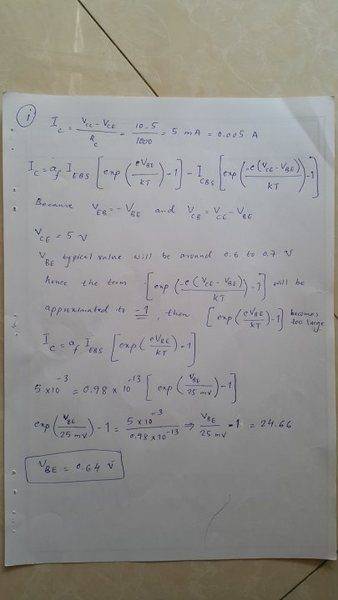 i
I_C = (V_CC - V_CE)/R_C = (10-5)/1000 = 5 mA = 0.005 A
I_C = a_f I_EBS [exp(eV_BE/KT) - 1] - I_CBS [exp(-e(V_CE - V_BE)/KT) - 1]
Because V_EB = - V_BE and V_CB = V_CE - V_BE
V_CE = 5 V
V_BE typical value will be around 0.6 to 0.7 V
hence the term [exp(-e(V_CE - V_BE)/KT) - 1] will be
approximated to -1, then [exp(eV_BE/KT) - 1] becomes too large
I_C = a_f I_EBS [exp(eV_BE/KT) - 1]
5 x 10^-3 = 0.98 x 10^-13 [exp(V_BE/25 mV) - 1]
exp(V_BE/25 mV) - 1 = 5 x 10^-3/0.98 x 10^-13 ⇒ V_BE/25 mV - 1 = 24.66
V_BE = 0.64 V